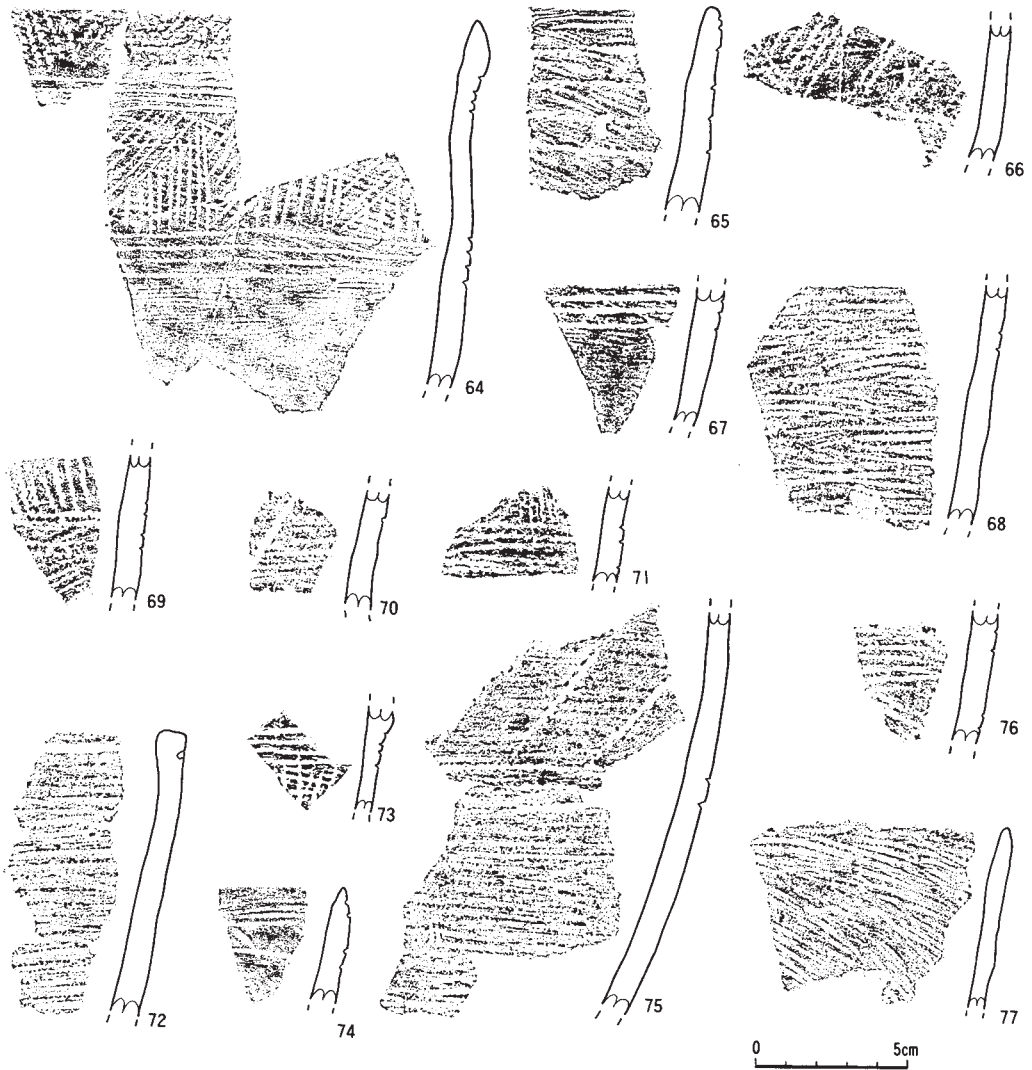 64
65
66
67
68
69
70
71
72
73
74
75
76
77
0 5cm